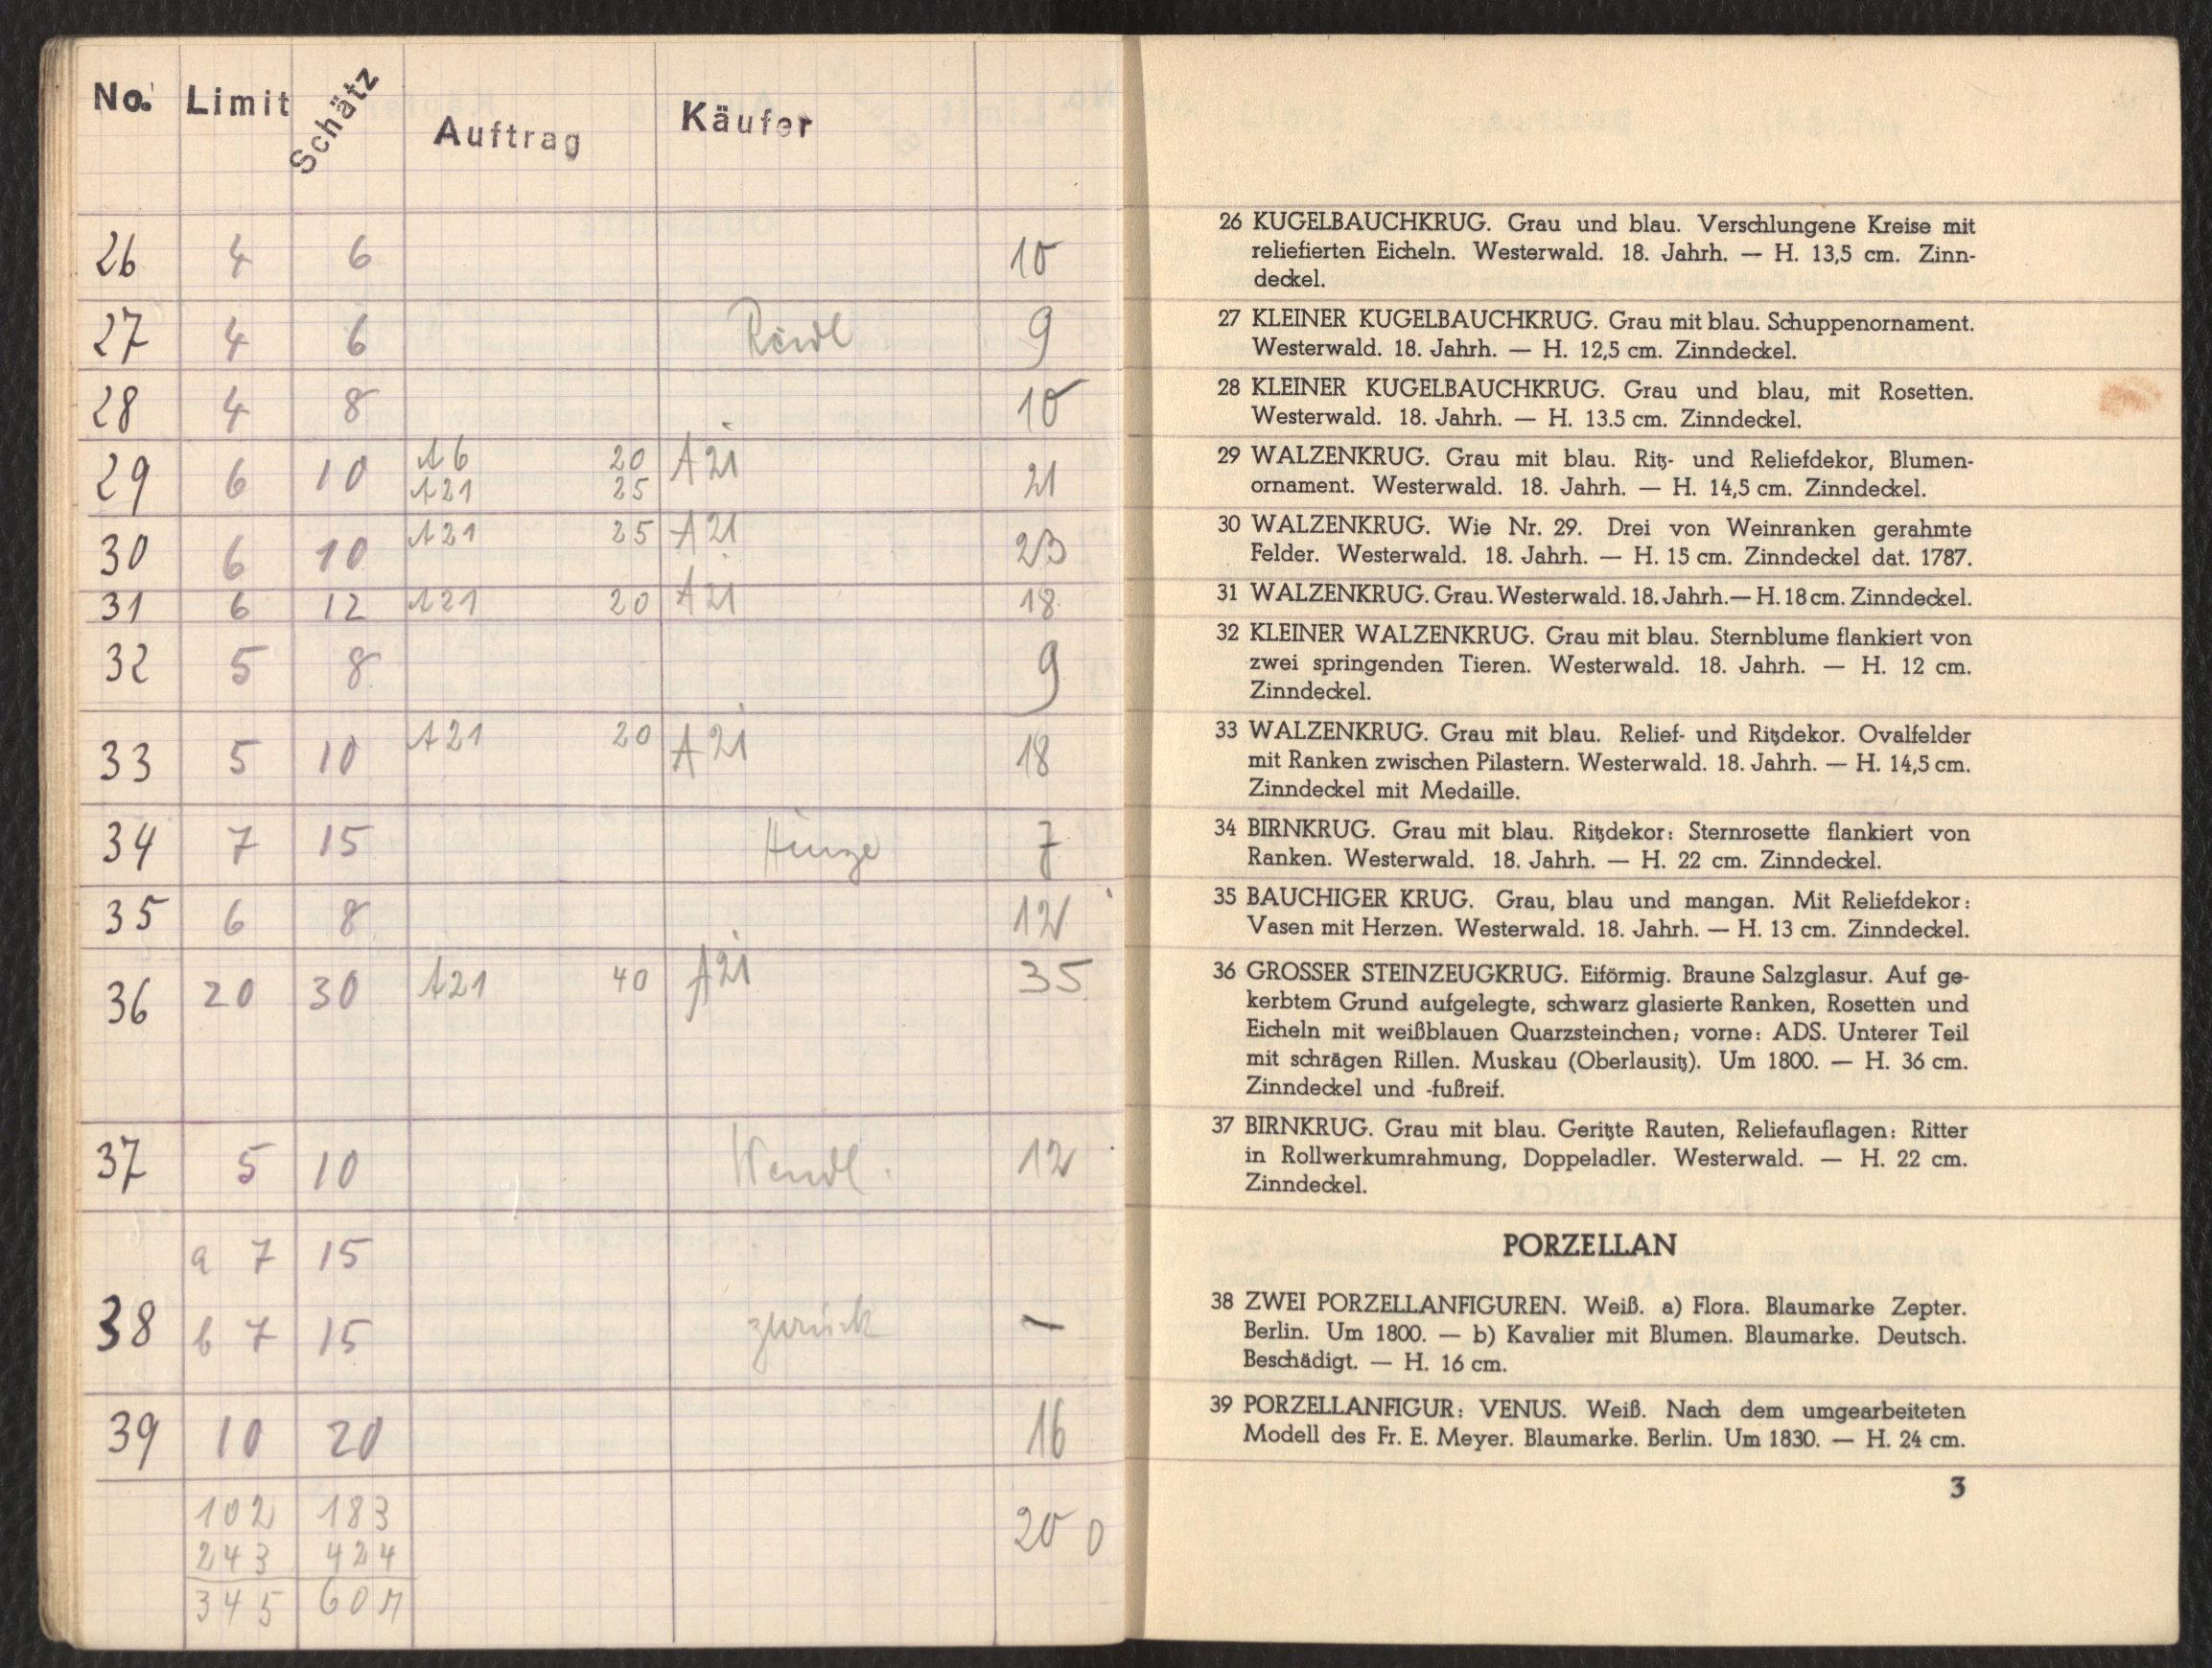 No. Limit Schätz Auftrag Käufer
26 4 6 10
27 4 6 9
28 4 8 10
29 6 10 A6 20 A21 21
A21 25
30 6 10 A21 25 A21 23
31 6 12 A21 20 A21 18
32 5 8 9
33 5 10 A21 20 A21 18
34 7 15 Hinze 7
35 6 8 12
36 20 30 A21 40 A21 35
37 5 10 Wendl. 12
a 7 15
38 b 7 15 zurück —
39 10 20 16
102 183
200
243 424
345 607
26 KUGELBAUCHKRUG. Grau und blau. Verschlungene Kreise mit
reliefierten Eicheln. Westerwald. 18. Jahrh. — H. 13,5 cm. Zinn-
deckel.
27 KLEINER KUGELBAUCHKRUG. Grau mit blau. Schuppenornament.
Westerwald. 18. Jahrh. — H. 12,5 cm. Zinndeckel.
28 KLEINER KUGELBAUCHKRUG. Grau und blau, mit Rosetten.
Westerwald. 18. Jahrh. — H. 13.5 cm. Zinndeckel.
29 WALZENKRUG. Grau mit blau. Ritz- und Reliefdekor, Blumen-
ornament. Westerwald. 18. Jahrh. — H. 14,5 cm. Zinndeckel.
30 WALZENKRUG. Wie Nr. 29. Drei von Weinranken gerahmte
Felder. Westerwald. 18. Jahrh. — H. 15 cm. Zinndeckel dat. 1787.
31 WALZENKRUG. Grau. Westerwald. 18. Jahrh. — H. 18 cm. Zinndeckel.
32 KLEINER WALZENKRUG. Grau mit blau. Sternblume flankiert von
zwei springenden Tieren. Westerwald. 18. Jahrh. — H. 12 cm.
Zinndeckel.
33 WALZENKRUG. Grau mit blau. Relief- und Ritzdekor. Ovalfelder
mit Ranken zwischen Pilastern. Westerwald. 18. Jahrh. — H. 14,5 cm.
Zinndeckel mit Medaille.
34 BIRNKRUG. Grau mit blau. Ritzdekor: Sternrosette flankiert von
Ranken. Westerwald. 18. Jahrh. — H. 22 cm. Zinndeckel.
35 BAUCHIGER KRUG. Grau, blau und mangan. Mit Reliefdekor:
Vasen mit Herzen. Westerwald. 18. Jahrh. — H. 13 cm. Zinndeckel.
36 GROSSER STEINZEUGKRUG. Eiförmig. Braune Salzglasur. Auf ge-
kerbtem Grund aufgelegte, schwarz glasierte Ranken, Rosetten und
Eicheln mit weißblauen Quarzsteinchen; vorne: ADS. Unterer Teil
mit schrägen Rillen. Muskau (Oberlausitz). Um 1800. — H. 36 cm.
Zinndeckel und -fußreif.
37 BIRNKRUG. Grau mit blau. Geritzte Rauten, Reliefauflagen: Ritter
in Rollwerkumrahmung, Doppeladler. Westerwald. — H. 22 cm.
Zinndeckel.
PORZELLAN
38 ZWEI PORZELLANFIGUREN. Weiß. a) Flora. Blaumarke Zepter.
Berlin. Um 1800. — b) Kavalier mit Blumen. Blaumarke. Deutsch.
Beschädigt. — H. 16 cm.
39 PORZELLANFIGUR: VENUS. Weiß. Nach dem umgearbeiteten
Modell des Fr. E. Meyer. Blaumarke. Berlin. Um 1830. — H. 24 cm.
3